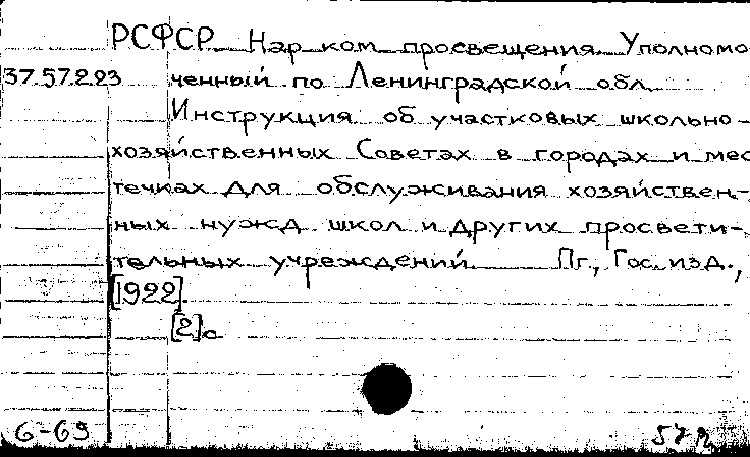 РСФСР Нар ком просвещения Уполномо
37.57.223 ченный по Ленинградской обл.
Инструкция об участковых школьно-
хозяйственных Советах в городах и мес
течках для обслуживания хозяйствен-
ных нужд школ и других просвети-
тельных учреждений Пг., Гос. изд.,
[1922].
[2]с
6-69